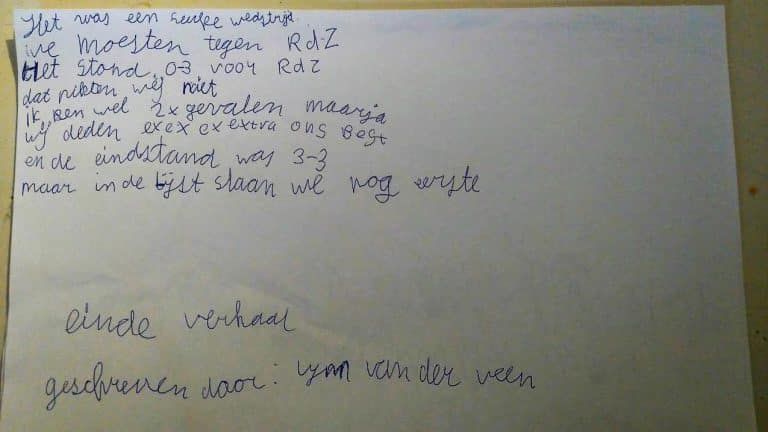 Het was een leuke wedstrijd
we moesten tegen RdZ
Het stond 0-3 voor RdZ
dat pikten wij niet
ik ben wel 2x gevalen maarja
wij deden ex ex ex extra ons Best
en de eindstand was 3-3
maar in de lijst staan we nog eerste
einde verhaal
geschreven door: lynn van der veen